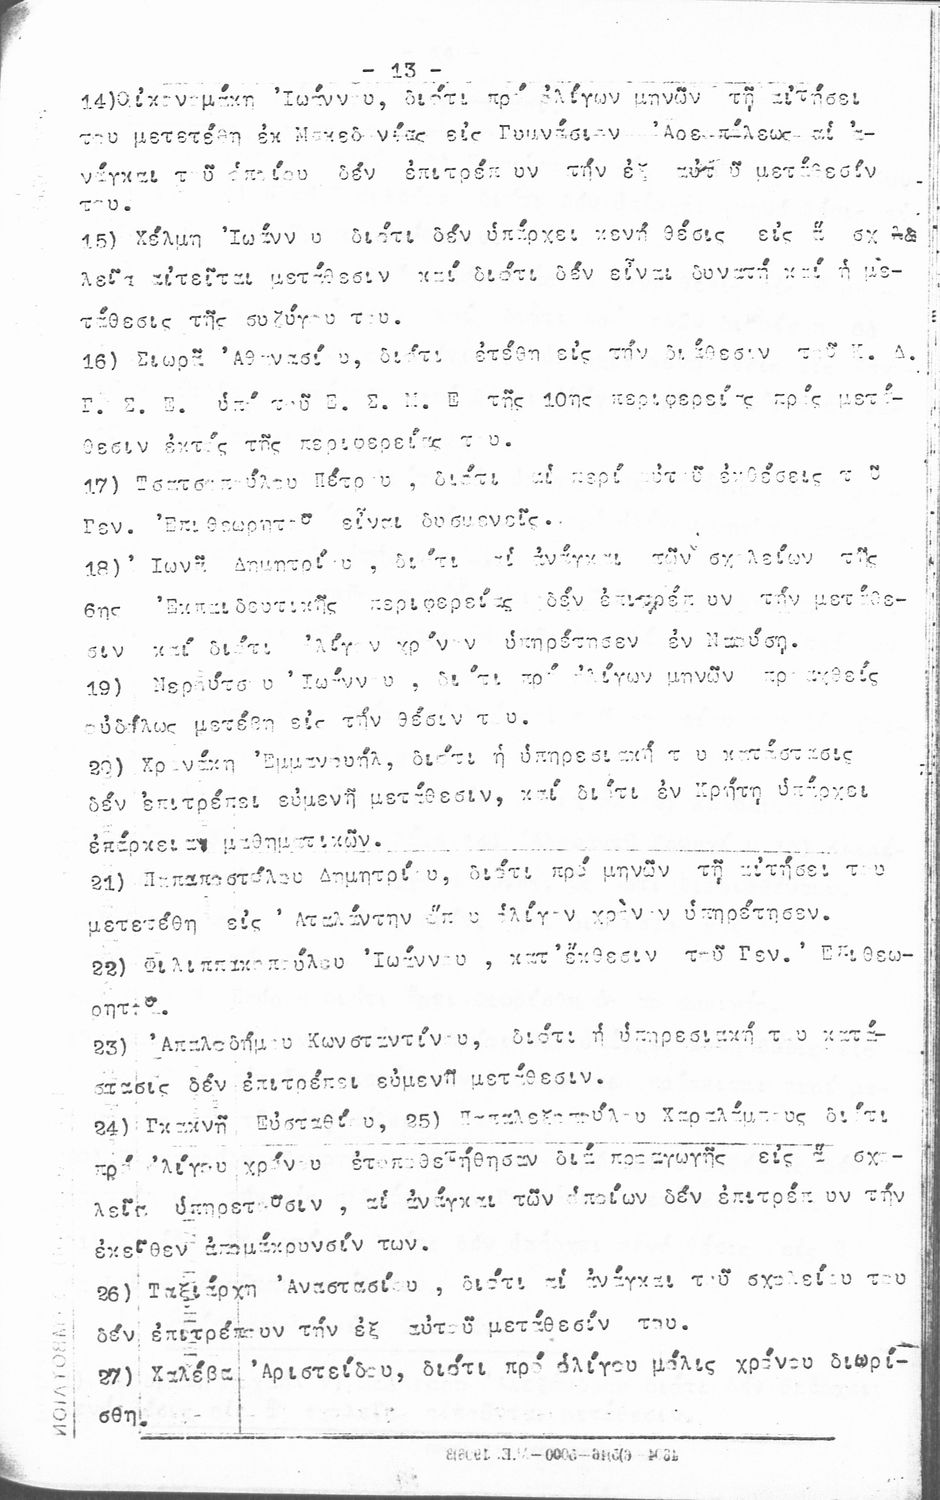 - 13 -
14)Οἰκονομάκη Ἰωάννου, διότι πρό ὀλίγων μηνῶν τῇ αἰτήσει
του μετετέθη ἐκ Μακεδονίας εἰς Γυμνάσιον Ἀρεοπόλεως αἱ ἀ-
νάγκαι τοῦ ὁποίου δέν ἐπιτρέπουν τήν ἐξ αὐτοῦ μετάθεσίν
του.
15) Χέλμη Ἰωάννου διότι δέν ὑπάρχει κενή θέσις εἰς ἅ σχο
λεῖα αἰτεῖται μετάθεσιν καί διότι δέν εἶναι δυνατή καί ἡ με-
τάθεσις τῆς συζύγου του.
16) Σιωρᾶ Ἀθανασίου, διότι ἐτέθη εἰς τήν διάθεσιν τοῦ Κ. Δ.
Γ. Σ. Ε. ὑπό τοῦ Ε. Σ. Μ. Ε τῆς 10ης περιφερείας πρός μετά-
θεσιν ἐκτός τῆς περιφερείας του.
17) Τσατσοπούλου Πέτρου , διότι αἱ περί αὐτοῦ ἐκθέσεις τοῦ
Γεν. Ἐπιθεωρητοῦ εἶναι δυσμενεῖς..
18) Ἰωνᾶ Δημητρίου , διότι αἱ ἀνάγκαι τῶν σχολείων τῆς
6ης Ἐκπαιδευτικῆς περιφερείας δέν ἐπιτρέπουν τήν μετάθε-
σιν καί διότι ὀλίγον χρόνον ὑπηρέτησεν ἐν Ναούσῃ.
19) Νερούτσου Ἰωάννου , διότι πρό ὀλίγων μηνῶν προαχθείς
οὐδόλως μετέβη εἰς τήν θέσιν του.
20) Χρονάκη Ἐμμανουήλ, διότι ἡ ὑπηρεσιακή του κατάστασις
δέν ἐπιτρέπει εὐμενῆ μετάθεσιν, καί διότι ἐν Κρήτῃ ὑπάρχει
ἐπάρκεια μαθηματικῶν.
21) Παπαποστόλου Δημητρίου, διότι πρό μηνῶν τῇ αἰτήσει του
μετετέθη εἰς Ἀταλάντην ὅπου ὀλίγον χρόνον ὑπηρέτησεν.
22) Φιλιππακοπούλου Ἰωάννου , κατ' ἔκθεσιν τοῦ Γεν. Ἐπιθεω-
ρητοῦ.
23) Ἀπαλοδήμου Κωνσταντίνου, διότι ἡ ὑπηρεσιακή του κατά-
στασις δέν ἐπιτρέπει εὐμενῆ μετάθεσιν.
24) Γκακνῆ Εὐσταθίου, 25) Παπαλεξοπούλου Χαραλάμπους διότι
πρό ὀλίγου χρόνου ἐτοποθετήθησαν διά προαγωγῆς εἰς ἅ σχο-
λεῖα ὑπηρετοῦσιν , αἱ ἀνάγκαι τῶν ὁποίων δέν ἐπιτρέπουν τήν
ἐκεῖθεν ἀπομάκρυνσίν των.
26) Ταξιάρχη Ἀναστασίου , διότι αἱ ἀνάγκαι τοῦ σχολείου του
δέν ἐπιτρέπουν τήν ἐξ αὐτοῦ μετάθεσίν του.
27) Χαλέβα Ἀριστείδου, διότι πρό ὀλίγου μόλις χρόνου διωρί-
σθη.